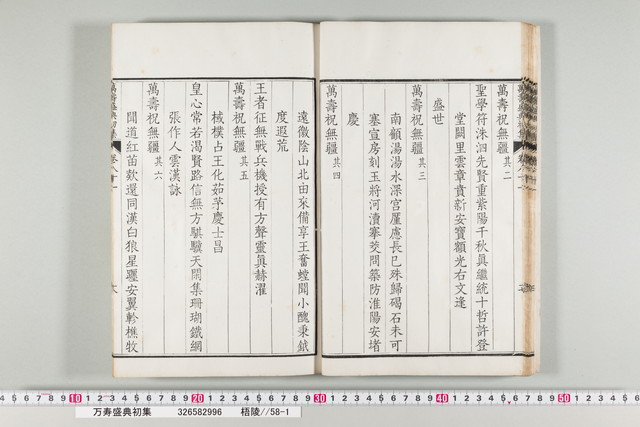 萬壽祝無疆 其二
聖學符洙泗先賢重紫陽千秋真繼統十哲許登
堂闕里雲章賁新安寶額光右文逢
盛世
萬壽祝無疆 其三
南頓湯湯水深宮廑慮長已殊歸碣石未可
塞宣房刻玉將河瀆搴茭問築防淮陽安堵
慶
萬壽祝無疆 其四
遠徼陰山北由來備享王奮螳聞小醜秉鉞
度遐荒
王者征無戰兵機授有方聲靈真赫濯
萬壽祝無疆 其五
棫樸占王化茹茅慶士昌
皇心常若渴賢路信無方騏驥天閑集珊瑚鐵網
張作人雲漢詠
萬壽祝無疆 其六
聞道紅苗款還同漢白狼星躔安翼軫樵牧
萬壽盛典初集 卷八十一
10 20 30 40 50
万寿盛典初集 326582996 梧陵//58-1